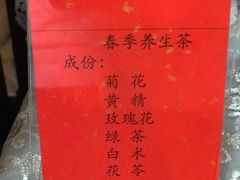 春季养生茶
成份：
菊 花
黄 精
玫瑰花
绿 茶
白 术
茯 苓